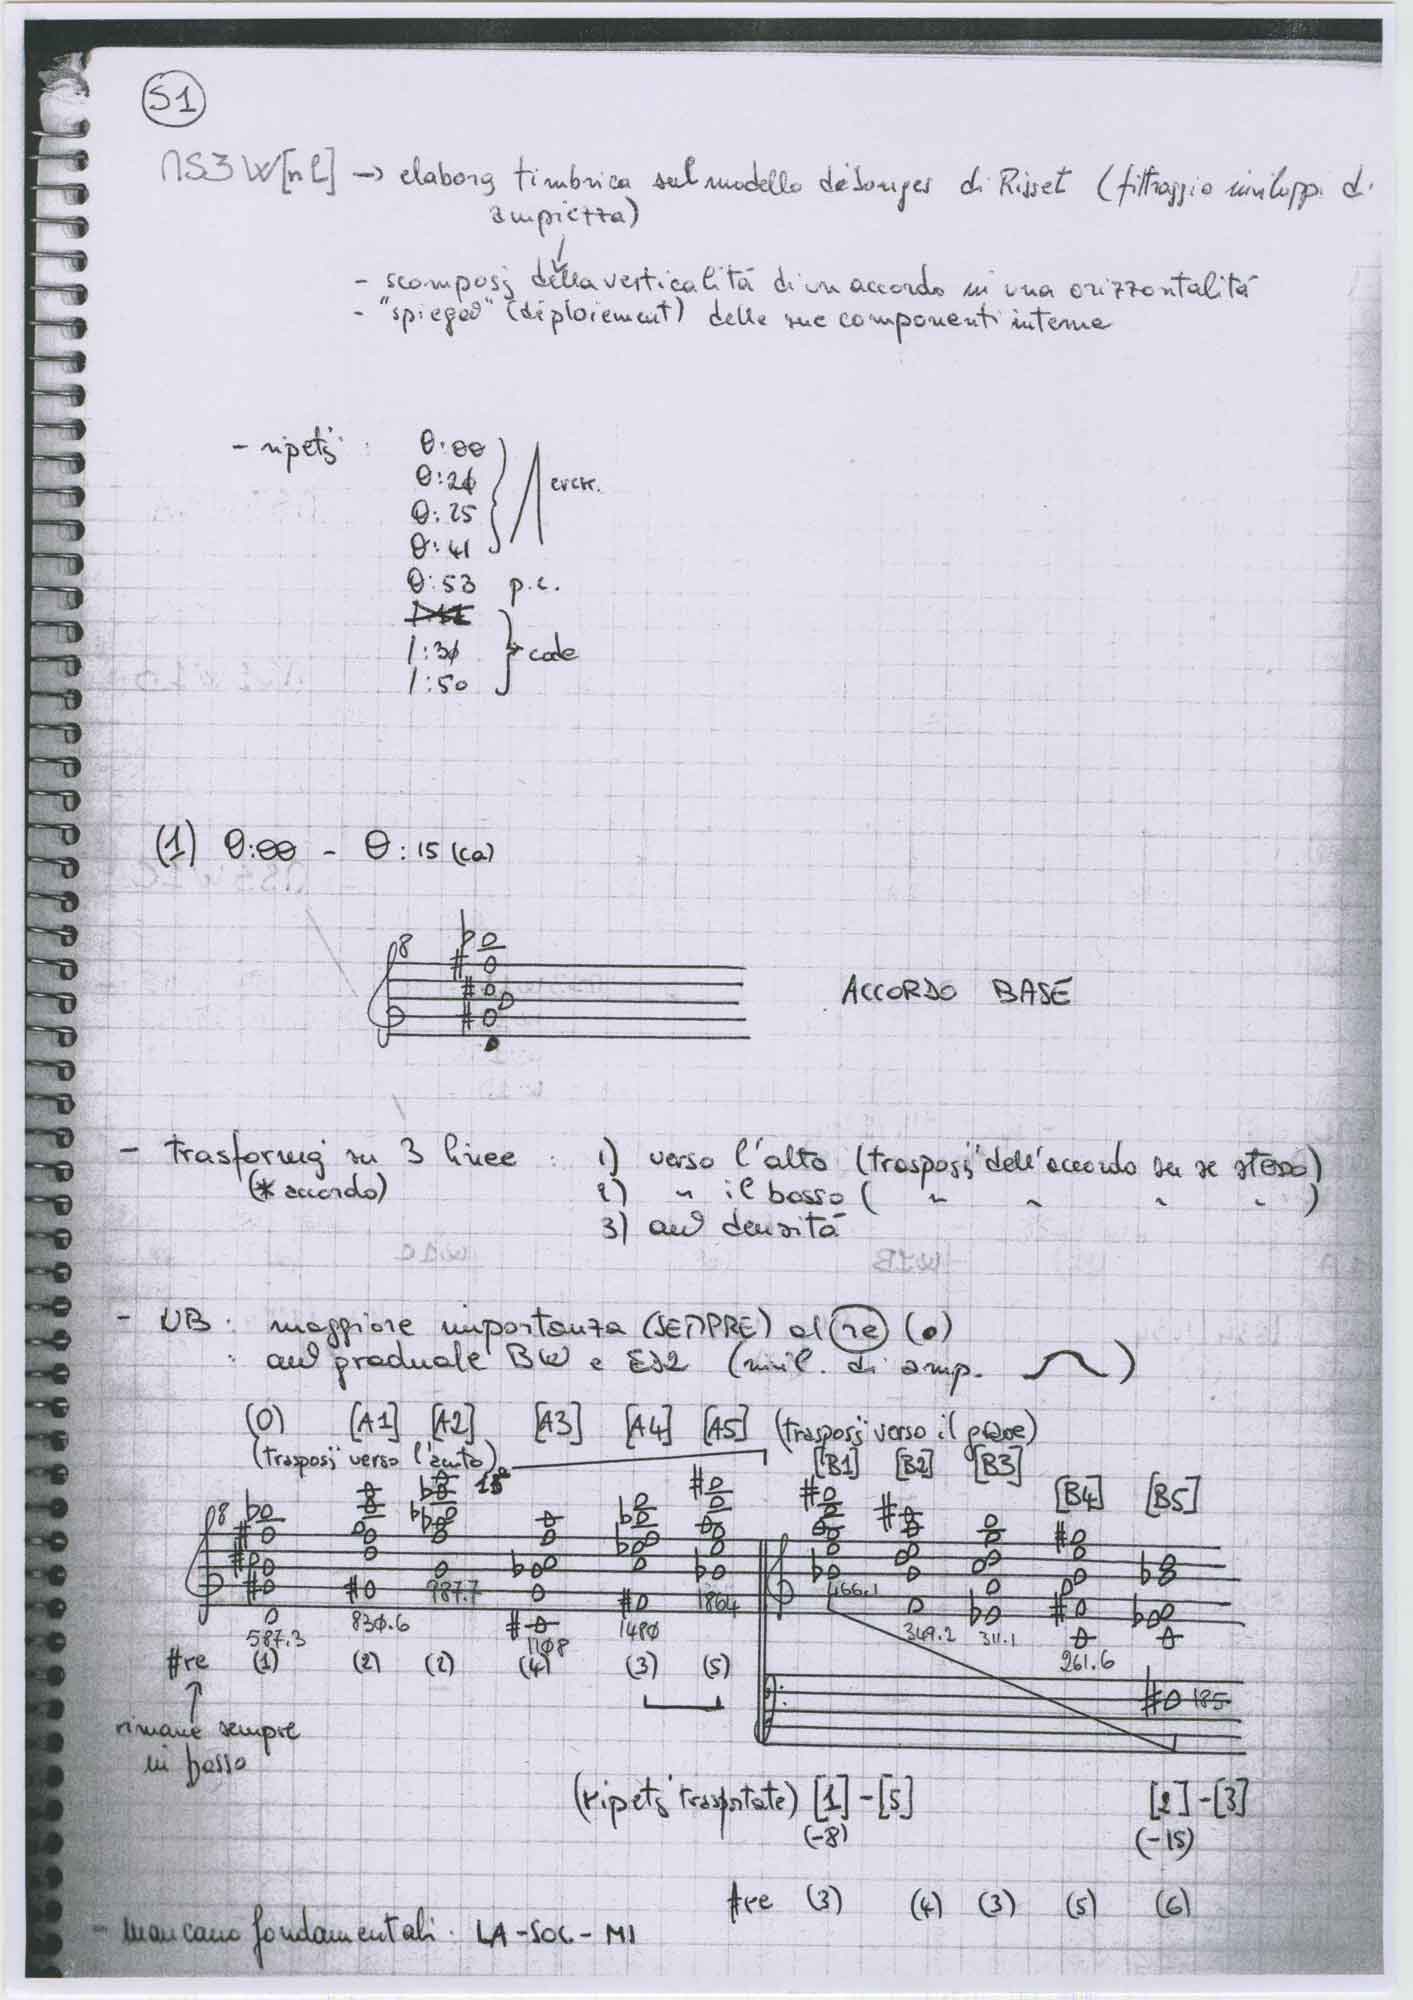 S1
NS3W[nl] → elaboraz timbrica sul modello de Songes di Risset (filtraggio inviluppi di
ampiezza)
- scomposiz della verticalità di un accordo in una orizzontalità
- "spiegaz" (déploiement) delle sue componenti interne
- ripetiz: 0:00
0:20
0:25 cresc.
0:41
0:53 p.c.
1:30 code
1:50
(1) 0:00 - 0:15 (ca)
8
ACCORDO BASE
- trasformaz su 3 linee : 1) verso l'alto (trasposiz dell'accordo su se stesso)
(* accordo) 2) " il basso ( " " " " )
3) aum densità
- NB : maggiore importanza (SEMPRE) al re (•)
: aum graduale BW e (invil. di amp. )
(0) [A1] [A2] [A3] [A4] [A5] (trasposiz verso il grave)
(trasposiz verso l'acuto) 15 [B1] [B2] [B3] [B4] [B5]
8
587.3 830.6 987.7 1108 1480 1864 466.1 349.2 311.1 261.6 185
#re (1) (2) (2) (4) (3) (5)
rimane sempre
in basso
(ripetiz trasportate) [1]-[5] [2]-[3]
(-8) (-15)
#re (3) (4) (3) (5) (6)
- mancano fondamentali: LA-SOL-MI